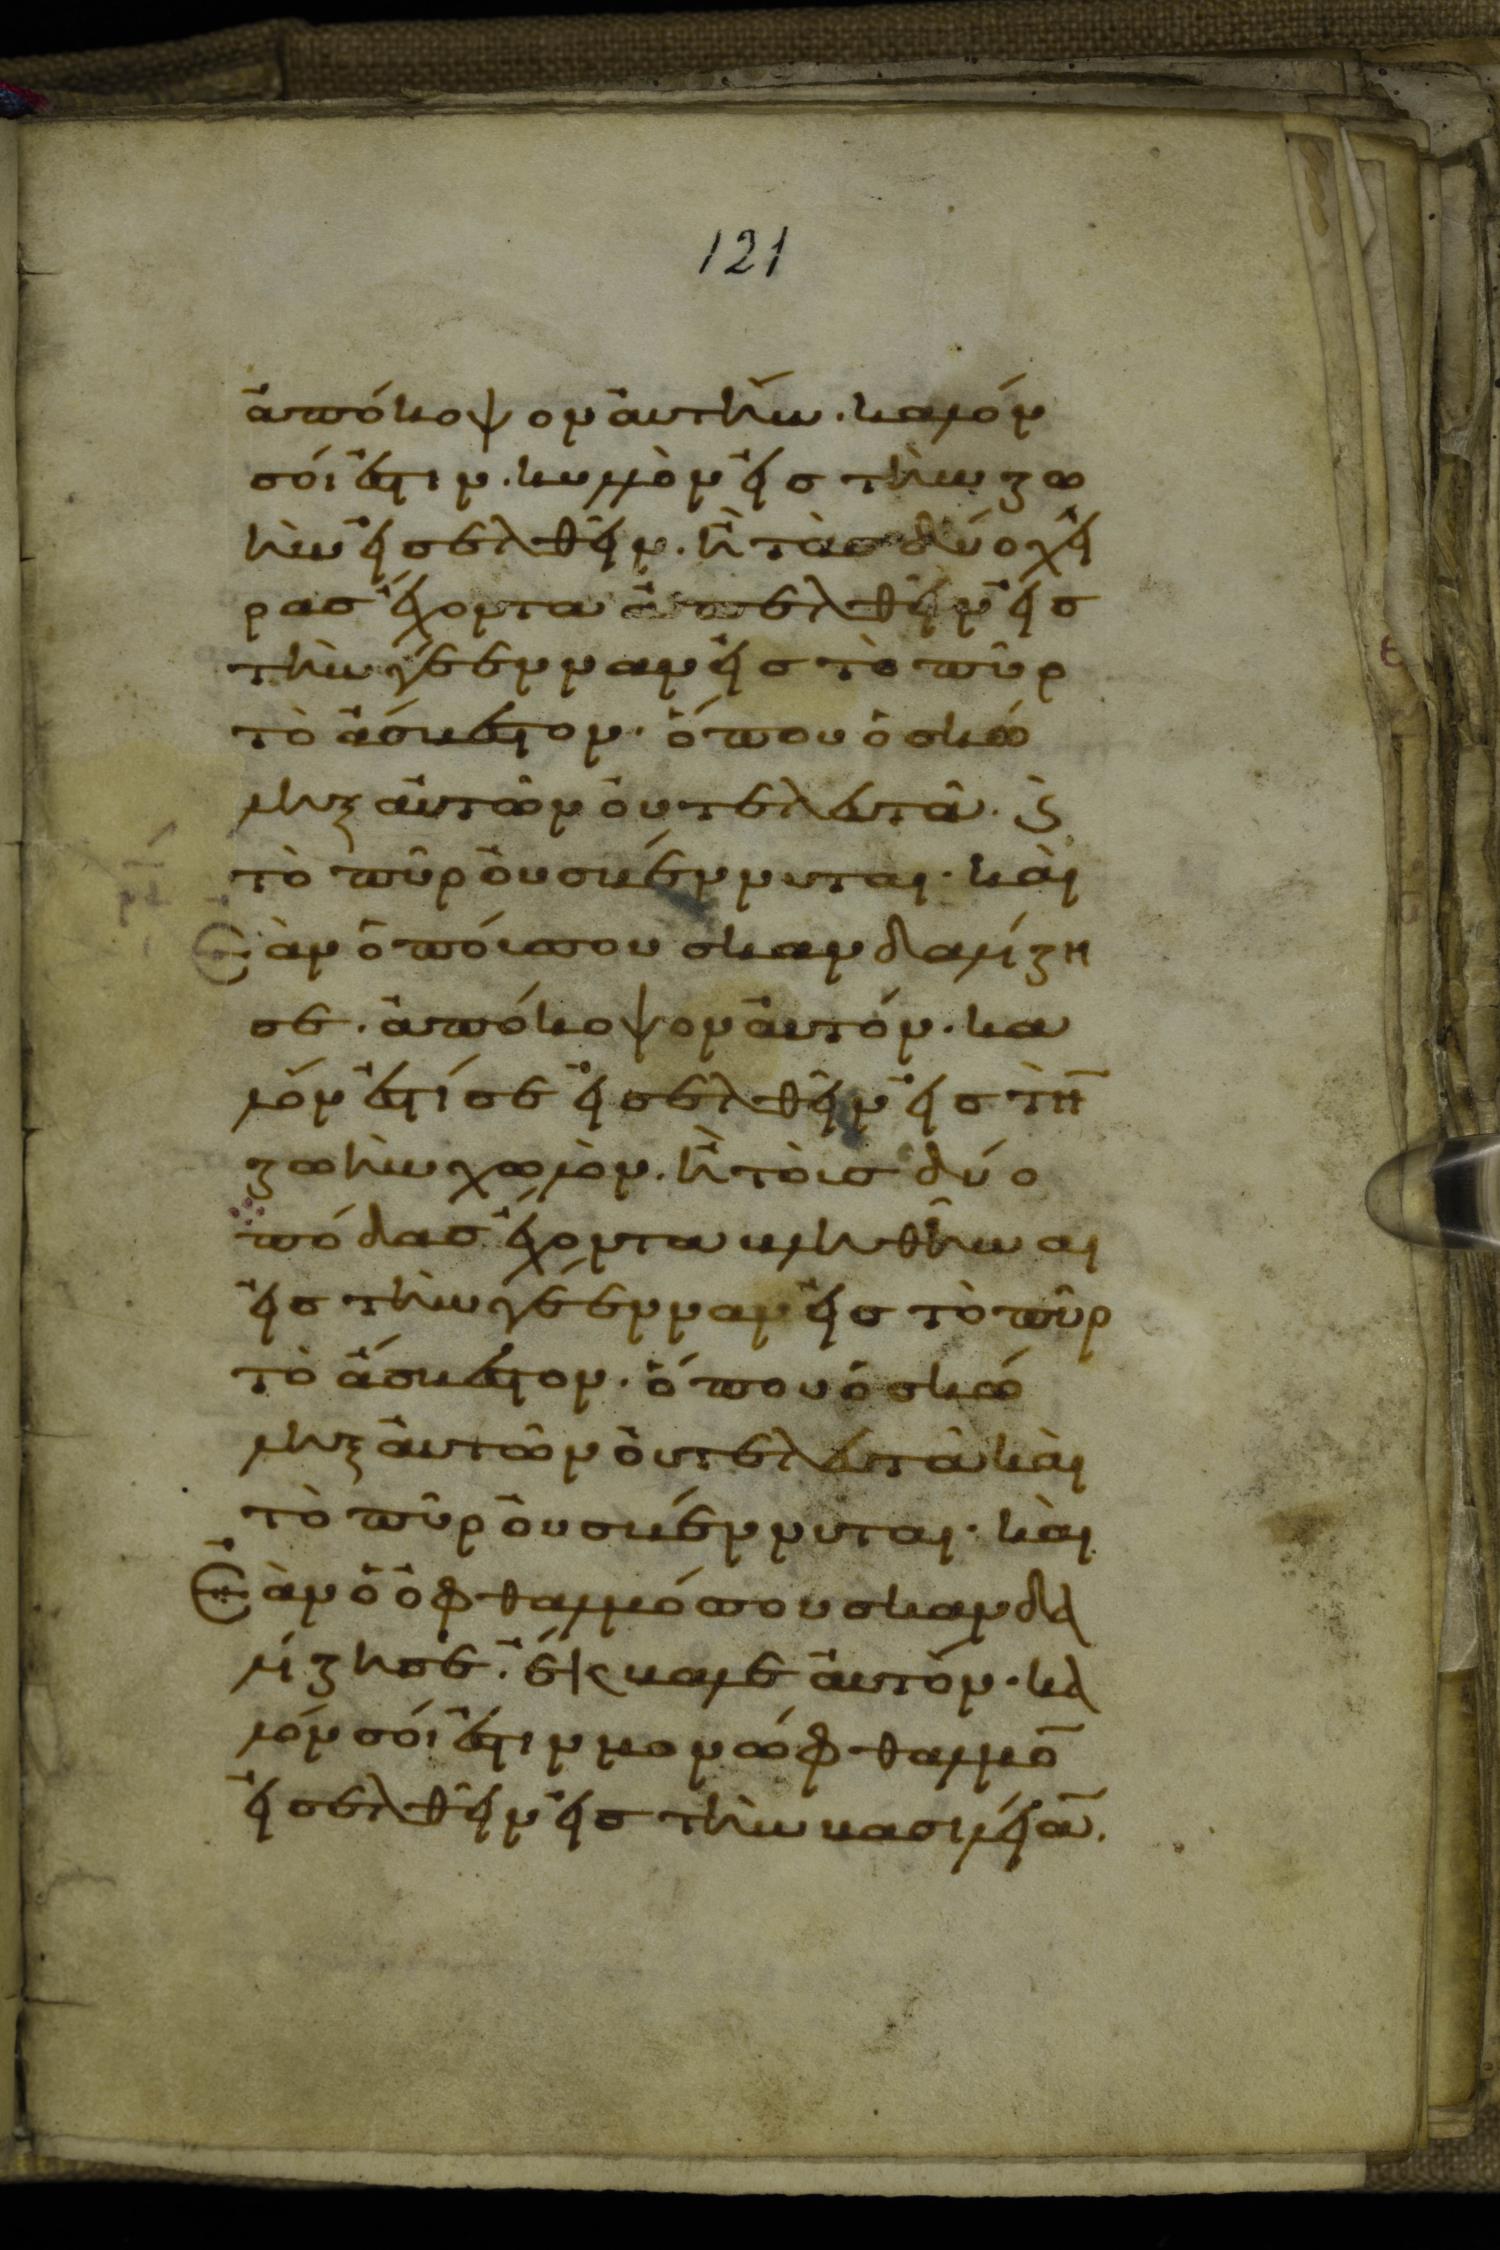 121
ἀπόκοψον ἀυτὴν. καλόν
σόι ἐστιν. κυλλὸν εἰς τὴν ζω
ὴν εἰσελθεῖν. ἢ τὰς δύο χεῖ
ρας ἔχοντα ἀπελθεῖν εἰς
τὴν γέενναν εἰς τὸ πῦρ
τὸ ἄσβεστον. ὅπου ὁ σκώ
ληξ ἀυτῶν ὀυ τελευτᾶ. ϗ
τὸ πῦρ ὀυ σβέννυται. καὶ
Ἐὰν ὁ πόυς σου σκανδαλίζη
σε. ἀπόκοψον ἀυτόν. κα
λόν ἐστί σε εἰσελθεῖν εἰς τὴ̅
ζωὴν χωλὸν. ἢ τοὺς δύο
πόδας ἔχοντα βληθῆναι
εἰς τὴν γέενναν εἰς τὸ πῦρ
τὸ ἄσβεστον. ὅπου ὁ σκώ
ληξ ἀυτῶν ὀυ τελευτᾶ καὶ
τὸ πῦρ ὀυ σβέννυται. καὶ
Ἐὰν ὁ ὀφθαλμός σου σκανδα
λίζη σε. ἔκβαλε ἀυτόν. κα
λόν σόι ἐστιν μονώφθαλμο̅
εἰσελθεῖν εἰς τὴν βασιλείἀ̅.